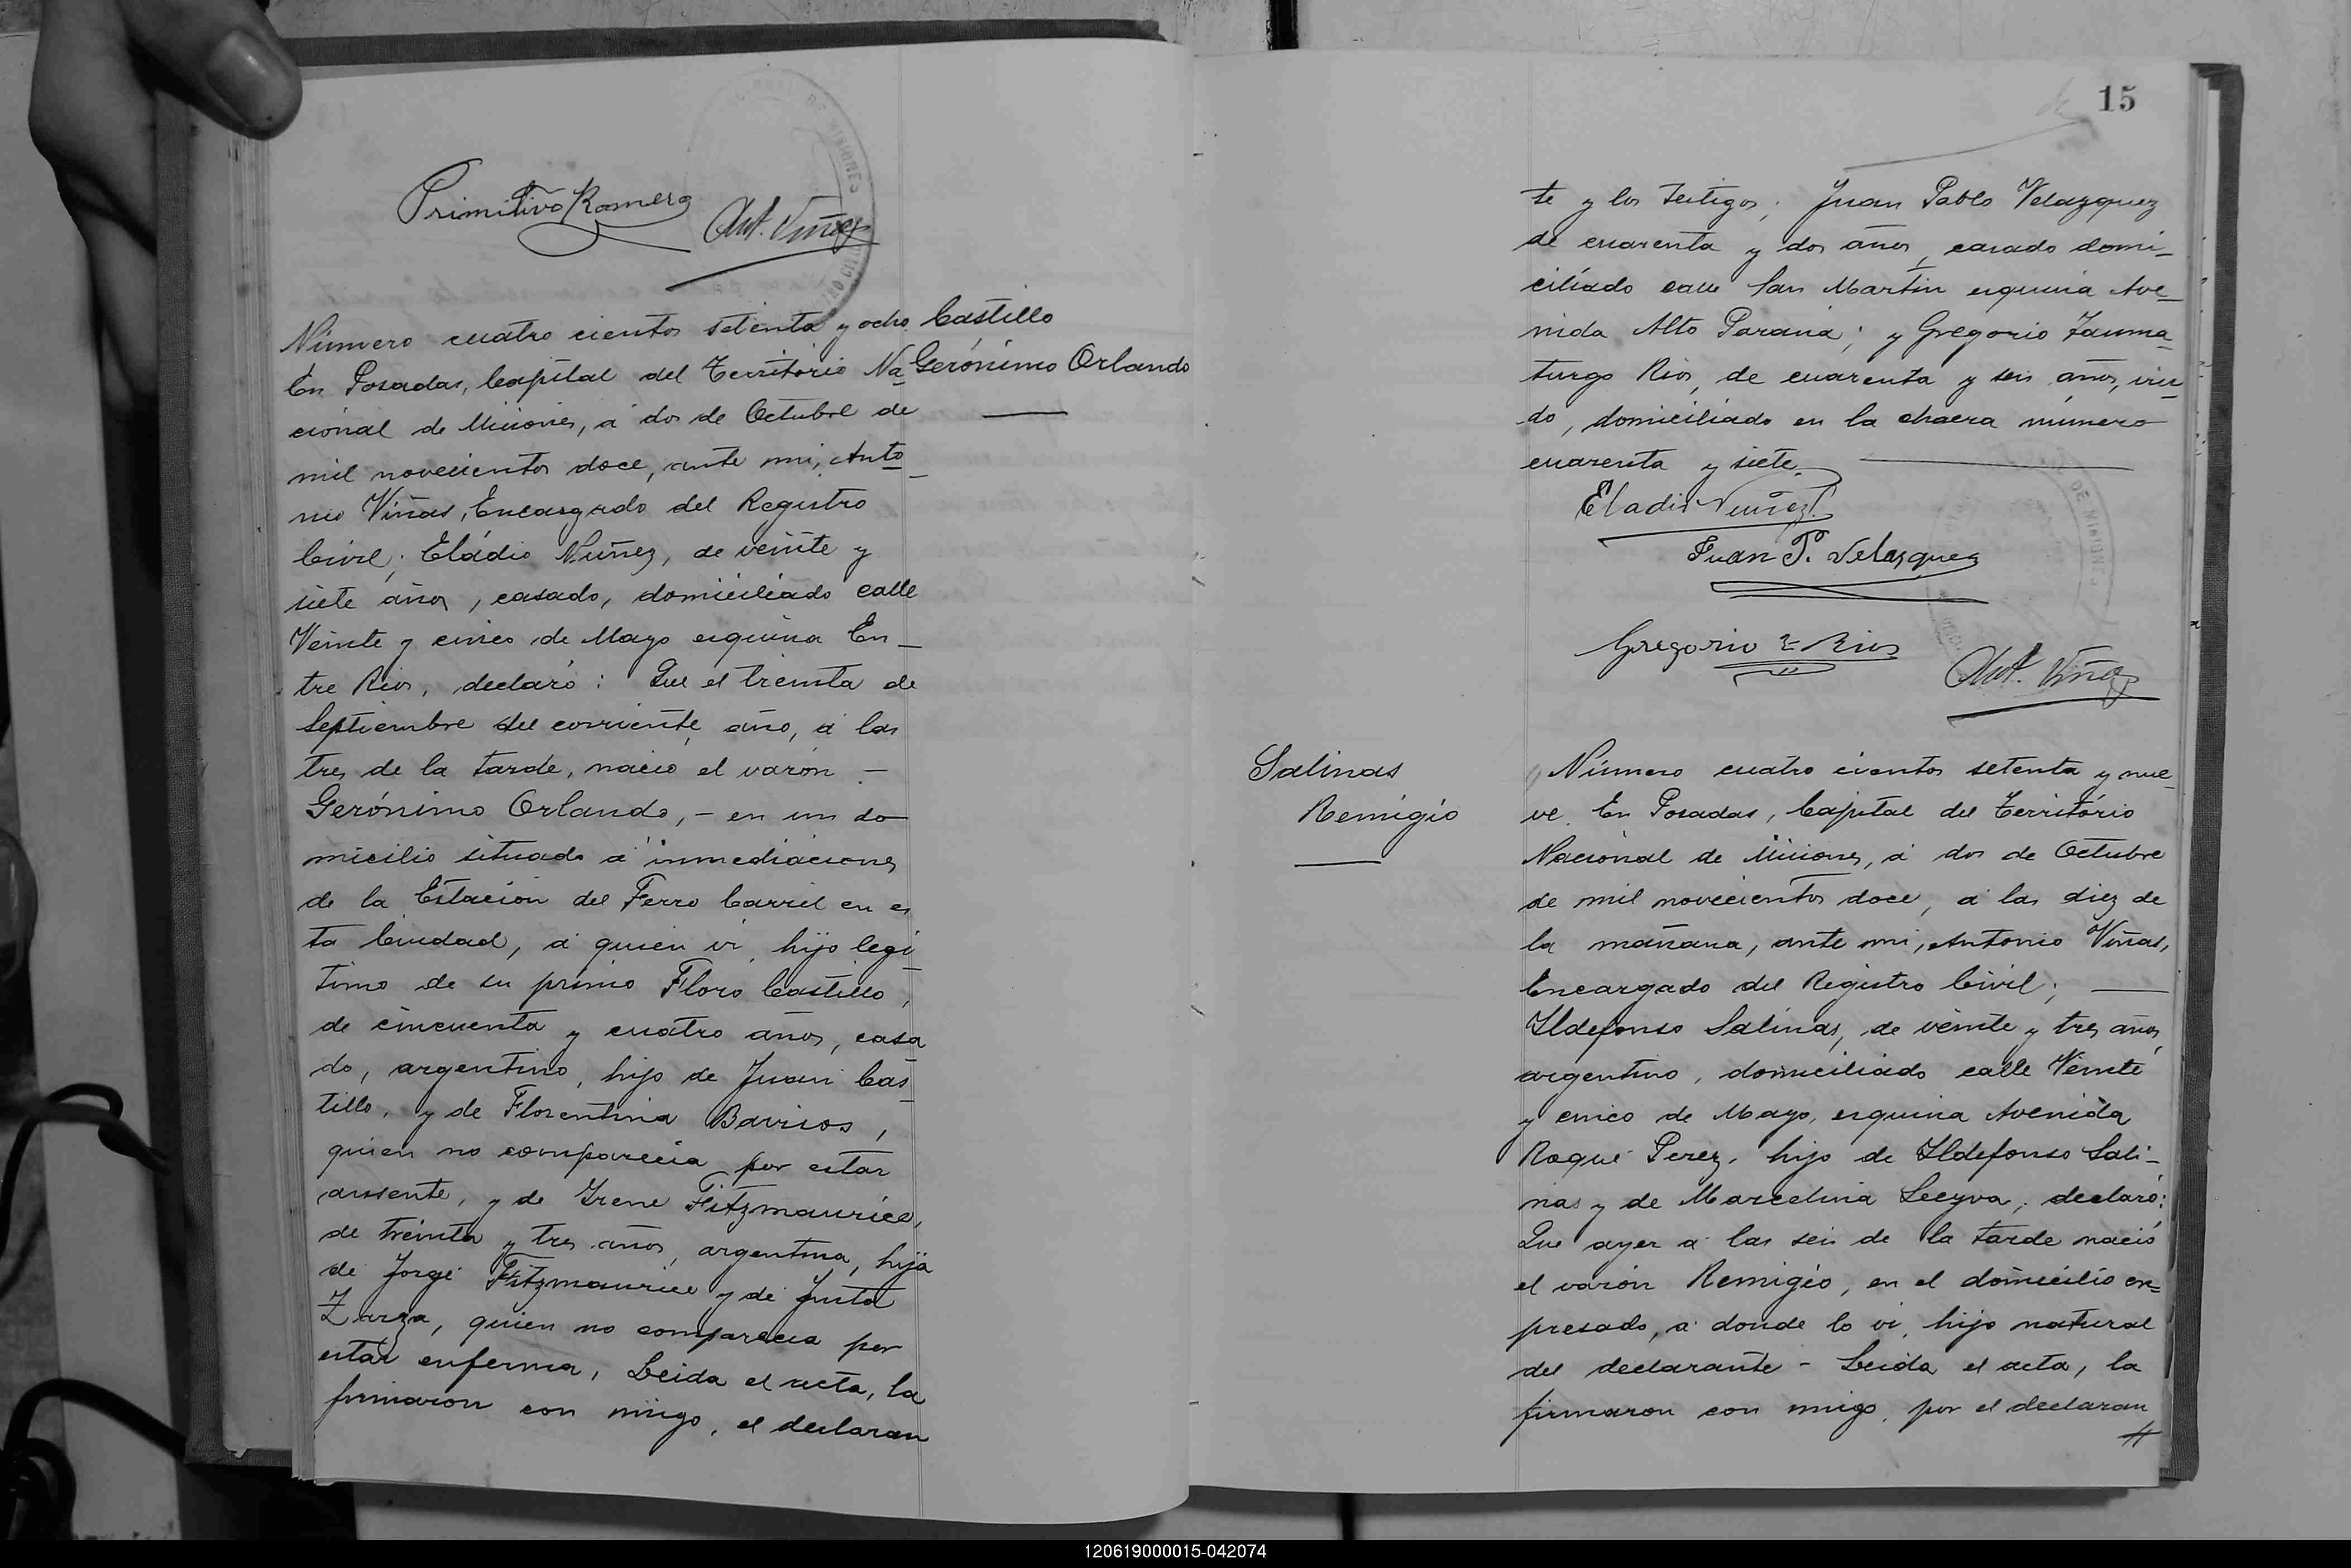 Primitivo Romero
Ant. Viñas
Castillo
Gerónimo Orlando
Número cuatro cientos setenta y ocho
En Posadas, Capital del Territorio Na-
cional de Misiones, á dos de Octubre de
mil novecientos doce, ante mi, Anto-
nio Viñas, Encargado del Registro
Civil; Eládio Nuñez, de veinte y
siete años, casado, domiciliado calle
Veinte y cinco de Mayo esquina En-
tre Rios, declaró: Que el treinta de
Septiembre del corriente año, á las
tres de la tarde, nació el varón -
Gerónimo Orlando, - en un do
micilio situado á inmediaciones
de la Estación del Ferro Carril en es
ta Ciudad, á quien vi, hijo legi-
timo de su primo Floro Castillo,
de cincuenta y cuatro años, casa-
do, argentino, hijo de Juan Cas-
tillo, y de Florentina Barrios,
quien no comparecia por estar
aussente, y de Irene Fitzmaurice,
de treinta y tres años, argentina, hija
de Jorge Fitzmaurice y de Justa
Zarza, quien no comparecia por
estar enferma, Leida el acta, la
firmaron con migo, el declaran
15
te y los testigos; Juan Pablo Velazquez
de cuarenta y dos años, casado domi-
ciliado calle San Martin esquina Ave-
nida Alto Paraná; y Gregorio Tauma-
turgo Rios, de cuarenta y seis años, viu-
do, domiciliado en la chacra número
cuarenta y siete.
Eladio Nuñez
Juan P. Velazquez
Gregorio T Rios
Ant. Viñas
Salinas
Remigio
Número cuatro cientos setenta y nue-
ve. En Posadas, Capital del Territorio
Nacional de Misiones, á dos de Octubre
de mil novecientos doce, á las diez de
la mañana, ante mi, Antonio Viñas,
Encargado del Registro Civil;
Ildefonso Salinas, de veinte y tres años,
argentino, domiciliado calle Veinte
y cinco de Mayo, esquina Avenida
Roque Perez, hijo de Ildefonso Sali-
nas y de Marcelina Leeyva; declaró:
Que ayer á las seis de la tarde nació
el varón Remigio, en el domicilio ex=
presado, á donde lo vi, hijo natural
del declarante - Leida el acta, la
firmaron con migo, por el declaran
120619000015-042074